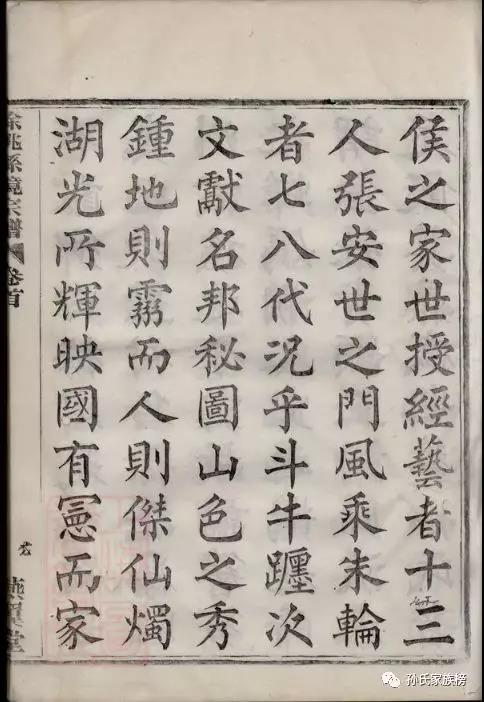 侯之家世授經藝者十三
人張安世之門風乘朱輪
者七八代況乎斗牛躔次
文獻名邦秘圖山色之秀
鍾地則靈而人則傑仙燭
湖光所輝映國有憲而家
餘姚孫境宗譜 卷首
燕翼堂
孙氏家族榜